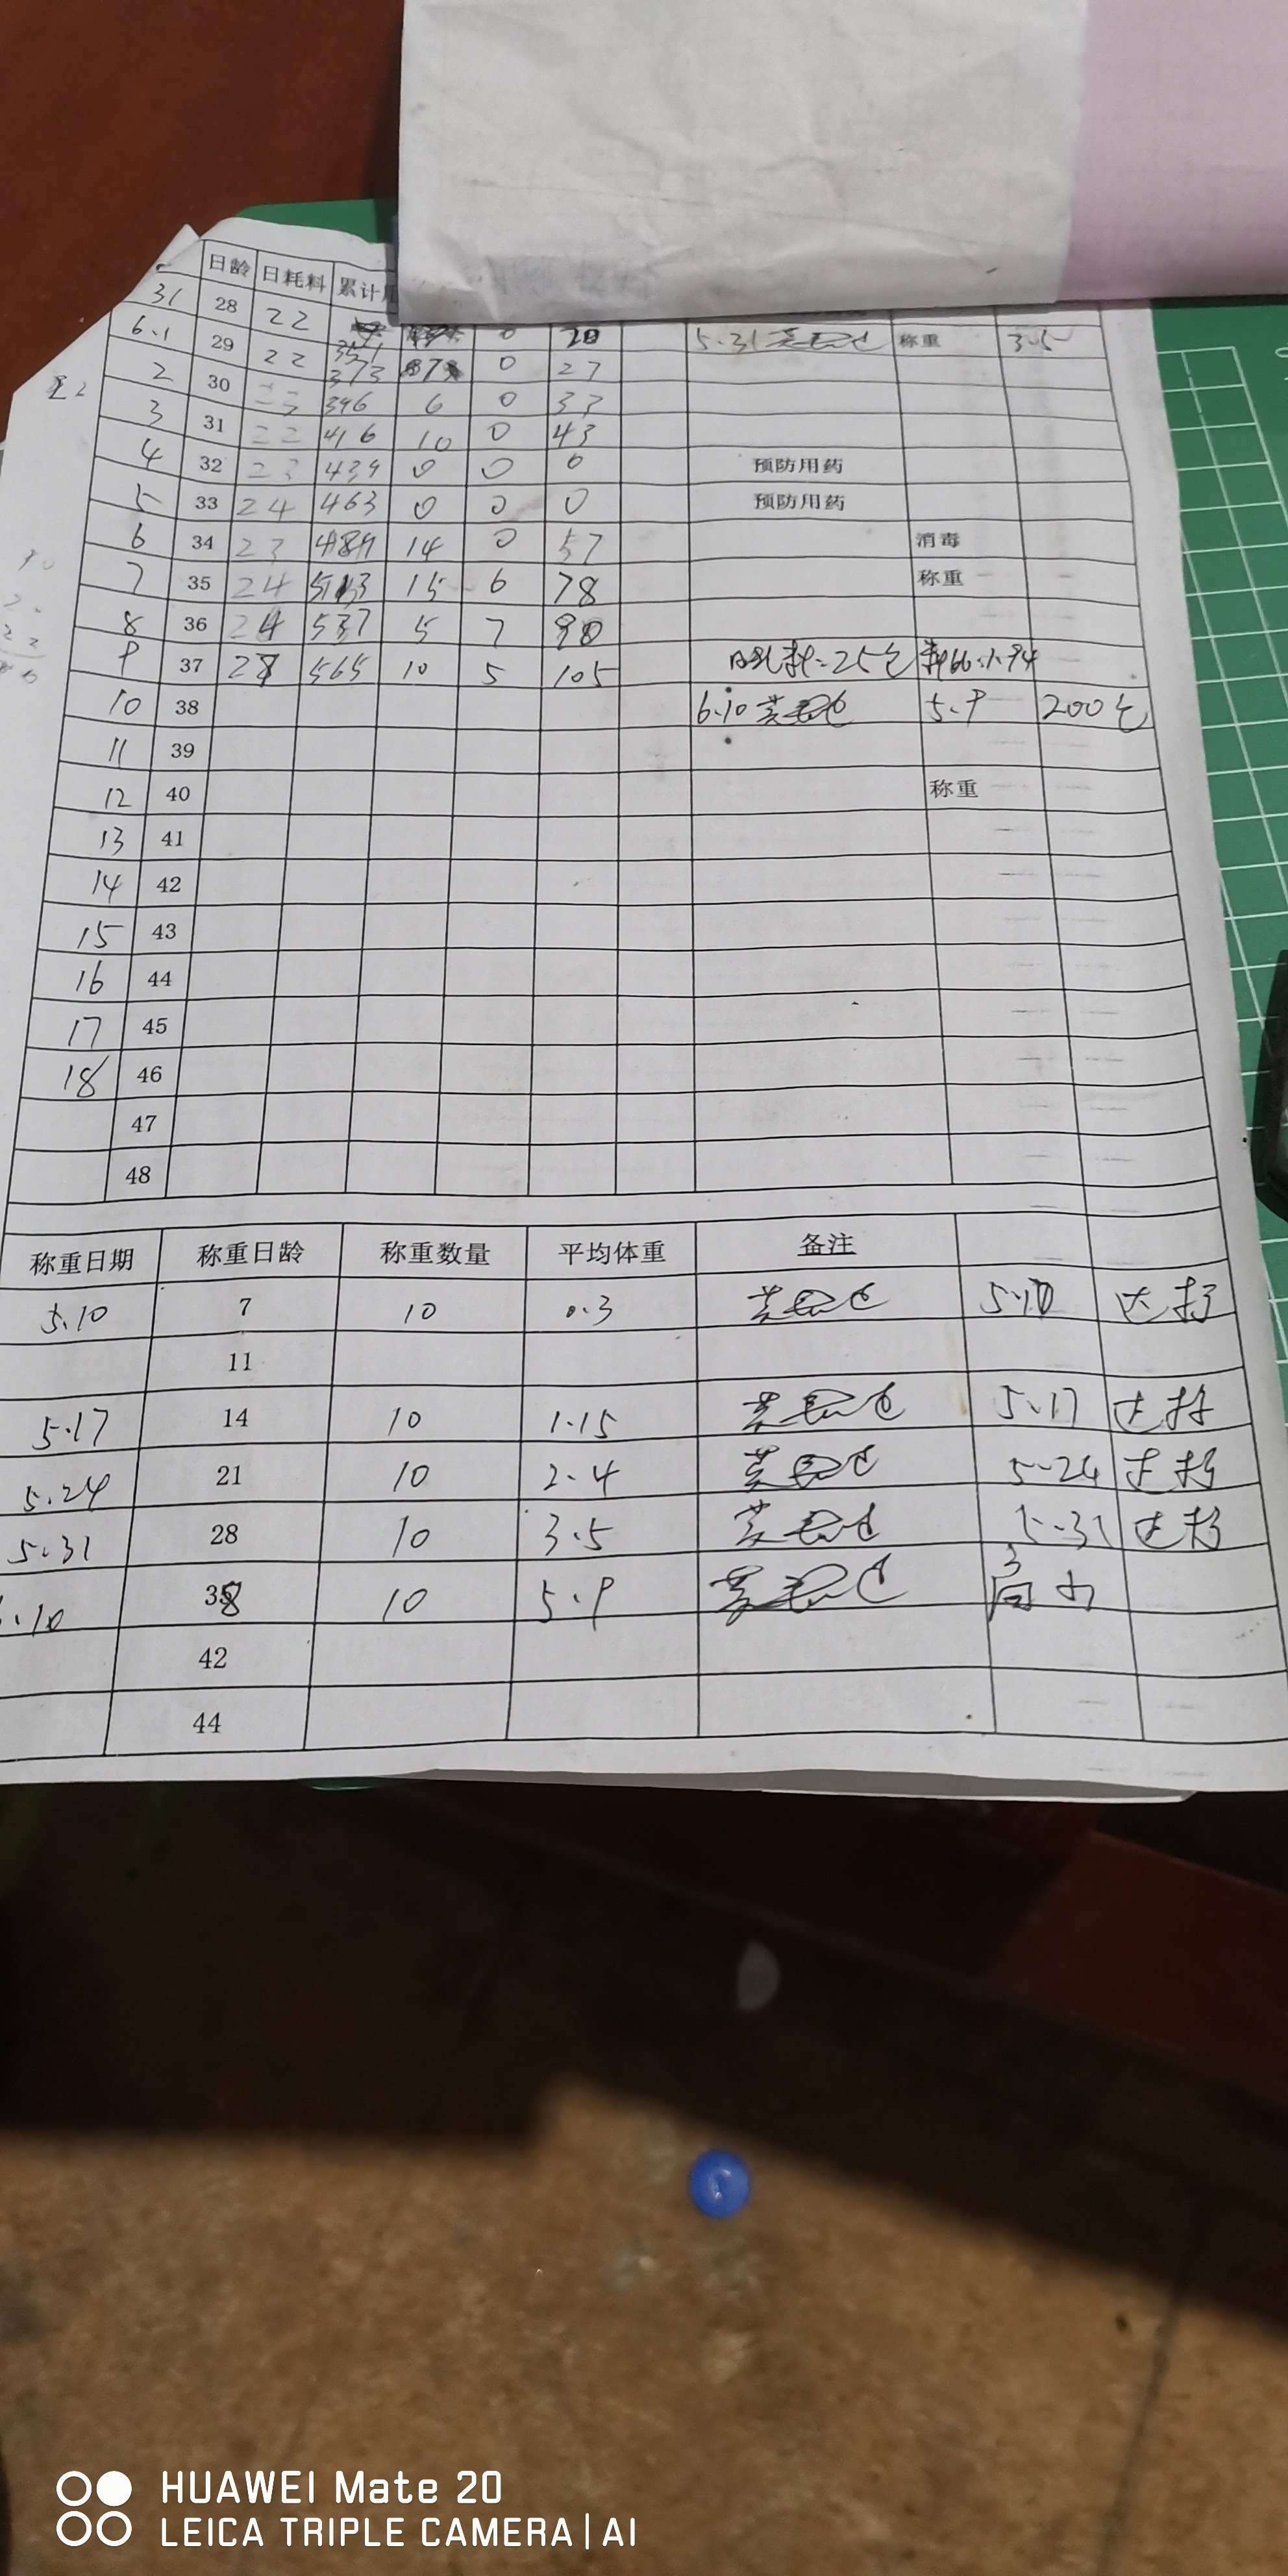 日龄 日耗料 累计
31 28 22 0 20 5.31 称重 3.5
6.1 29 22 373 0 27
2 30 23 396 6 0 33
3 31 22 416 10 0 43
4 32 23 439 0 0 0 预防用药
5 33 24 463 0 0 0 预防用药
6 34 23 14 0 57 消毒
7 35 24 513 15 6 78 称重
8 36 24 537 5 7 90
9 37 28 565 10 5 105 25包
10 38 6.10 5.9 200包
11 39
12 40 称重
13 41
14 42
15 43
16 44
17 45
18 46
47
48
称重日期 称重日龄 称重数量 平均体重 备注
5.10 7 10 0.3 5.10 达标
11
5.17 14 10 1.15 5.17 达标
5.24 21 10 2.4 5.24 达标
5.31 28 10 3.5 5.31 达标
.10 38 10 5.9
42
44
HUAWEI Mate 20
LEICA TRIPLE CAMERA | AI